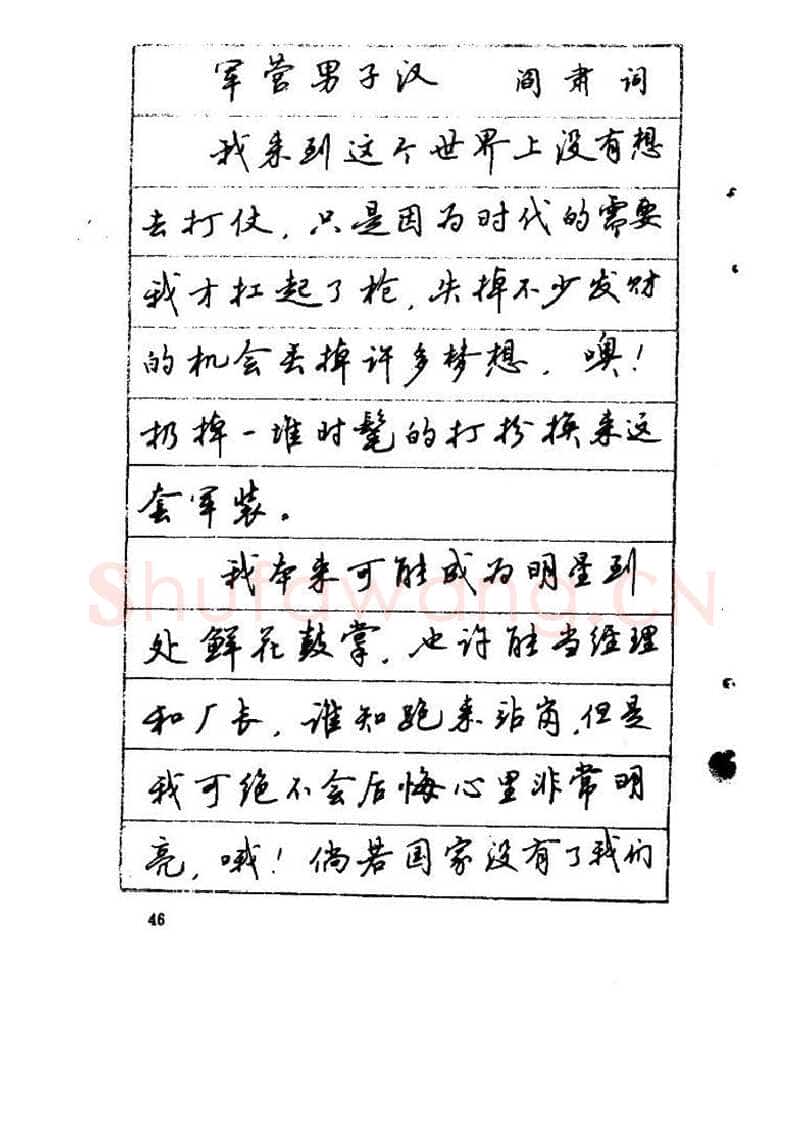 军营男子汉 阎肃词
我来到这个世界上没有想
去打仗，只是因为时代的需要
我才扛起了枪，失掉不少发财
的机会丢掉许多梦想，噢！
扔掉一堆时髦的打扮换来这
套军装。
我本来可能成为明星到
处鲜花鼓掌，也许能当经理
和厂长，谁知跑来站岗，但是
我可绝不会后悔心里非常明
亮，哦！倘若国家没有了我们
46
Shufawang.CN